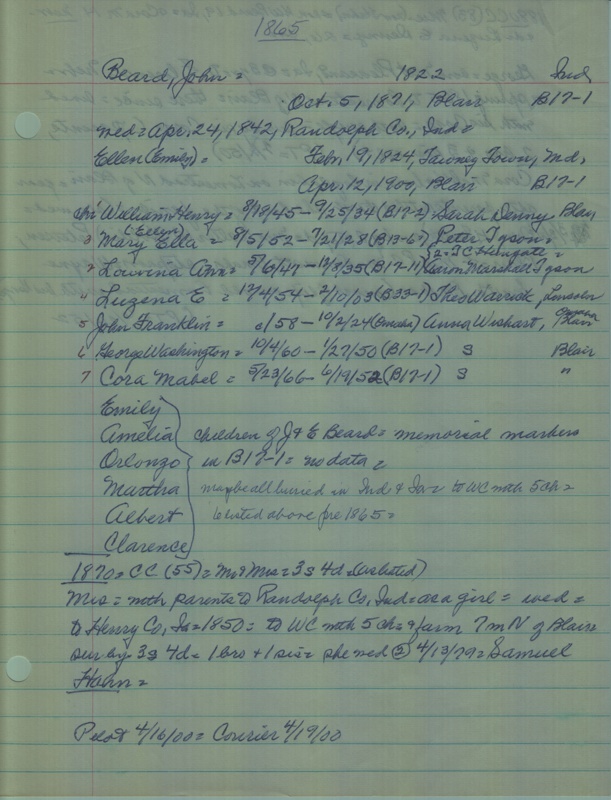 1865
Beard, John = 1822 Ind
Oct. 5, 1871, Blair B17-1
wed = Apr. 24, 1842, Randolph Co., Ind =
Ellen (Emily) = Feb. 19, 1824, Tawney Town, Md,
Apr. 12, 1900, Blair B17-1
chi William Henry = 8/18/45 - 9/25/34 (B17-2) Sarah Denny Blair
(Ellen)
3 Mary Ella = 8/5/52 - 7/21/28 (B13-67) Peter Tyson =
2 = J C Hungate =
2 Lovina Ann = 5/6/47 - 12/3/35 (B17-11) Aaron Marshall Tyson
4 Luzena E = 12/4/54 - 2/10/03 (B33-1) Theo Warrick,
5 John Franklin = 6/58 - 10/2/24 (Omaha) Anna Wishart, Omaha Blair
6 George Washington = 10/4/60 - 1/27/50 (B17-1) S Blair
7 Cora Mabel = 5/23/66 - 6/19/52 (B17-1) S "
Emily
Amelia children of J & E Beard = memorial markers
Orlonzo in B17-1 = no data =
Martha maybe all buried in Ind & Ia = to WC with 5 ch =
Albert listed above pre 1865 =
Clarence
1870 = CC (55) = Mr & Mrs = 3s 4d = (as listed)
Mrs = with parents to Randolph Co, Ind = as a girl = wed =
to Henry Co, Ia = 1850 = to WC with 5 ch = farm 7 m N of Blair
sur by 3s 4d = 1 bro + 1 sis = she wed (2) 4/13/79 = Samuel
Hahn =
Pilot 4/16/00 = Courier 4/19/00